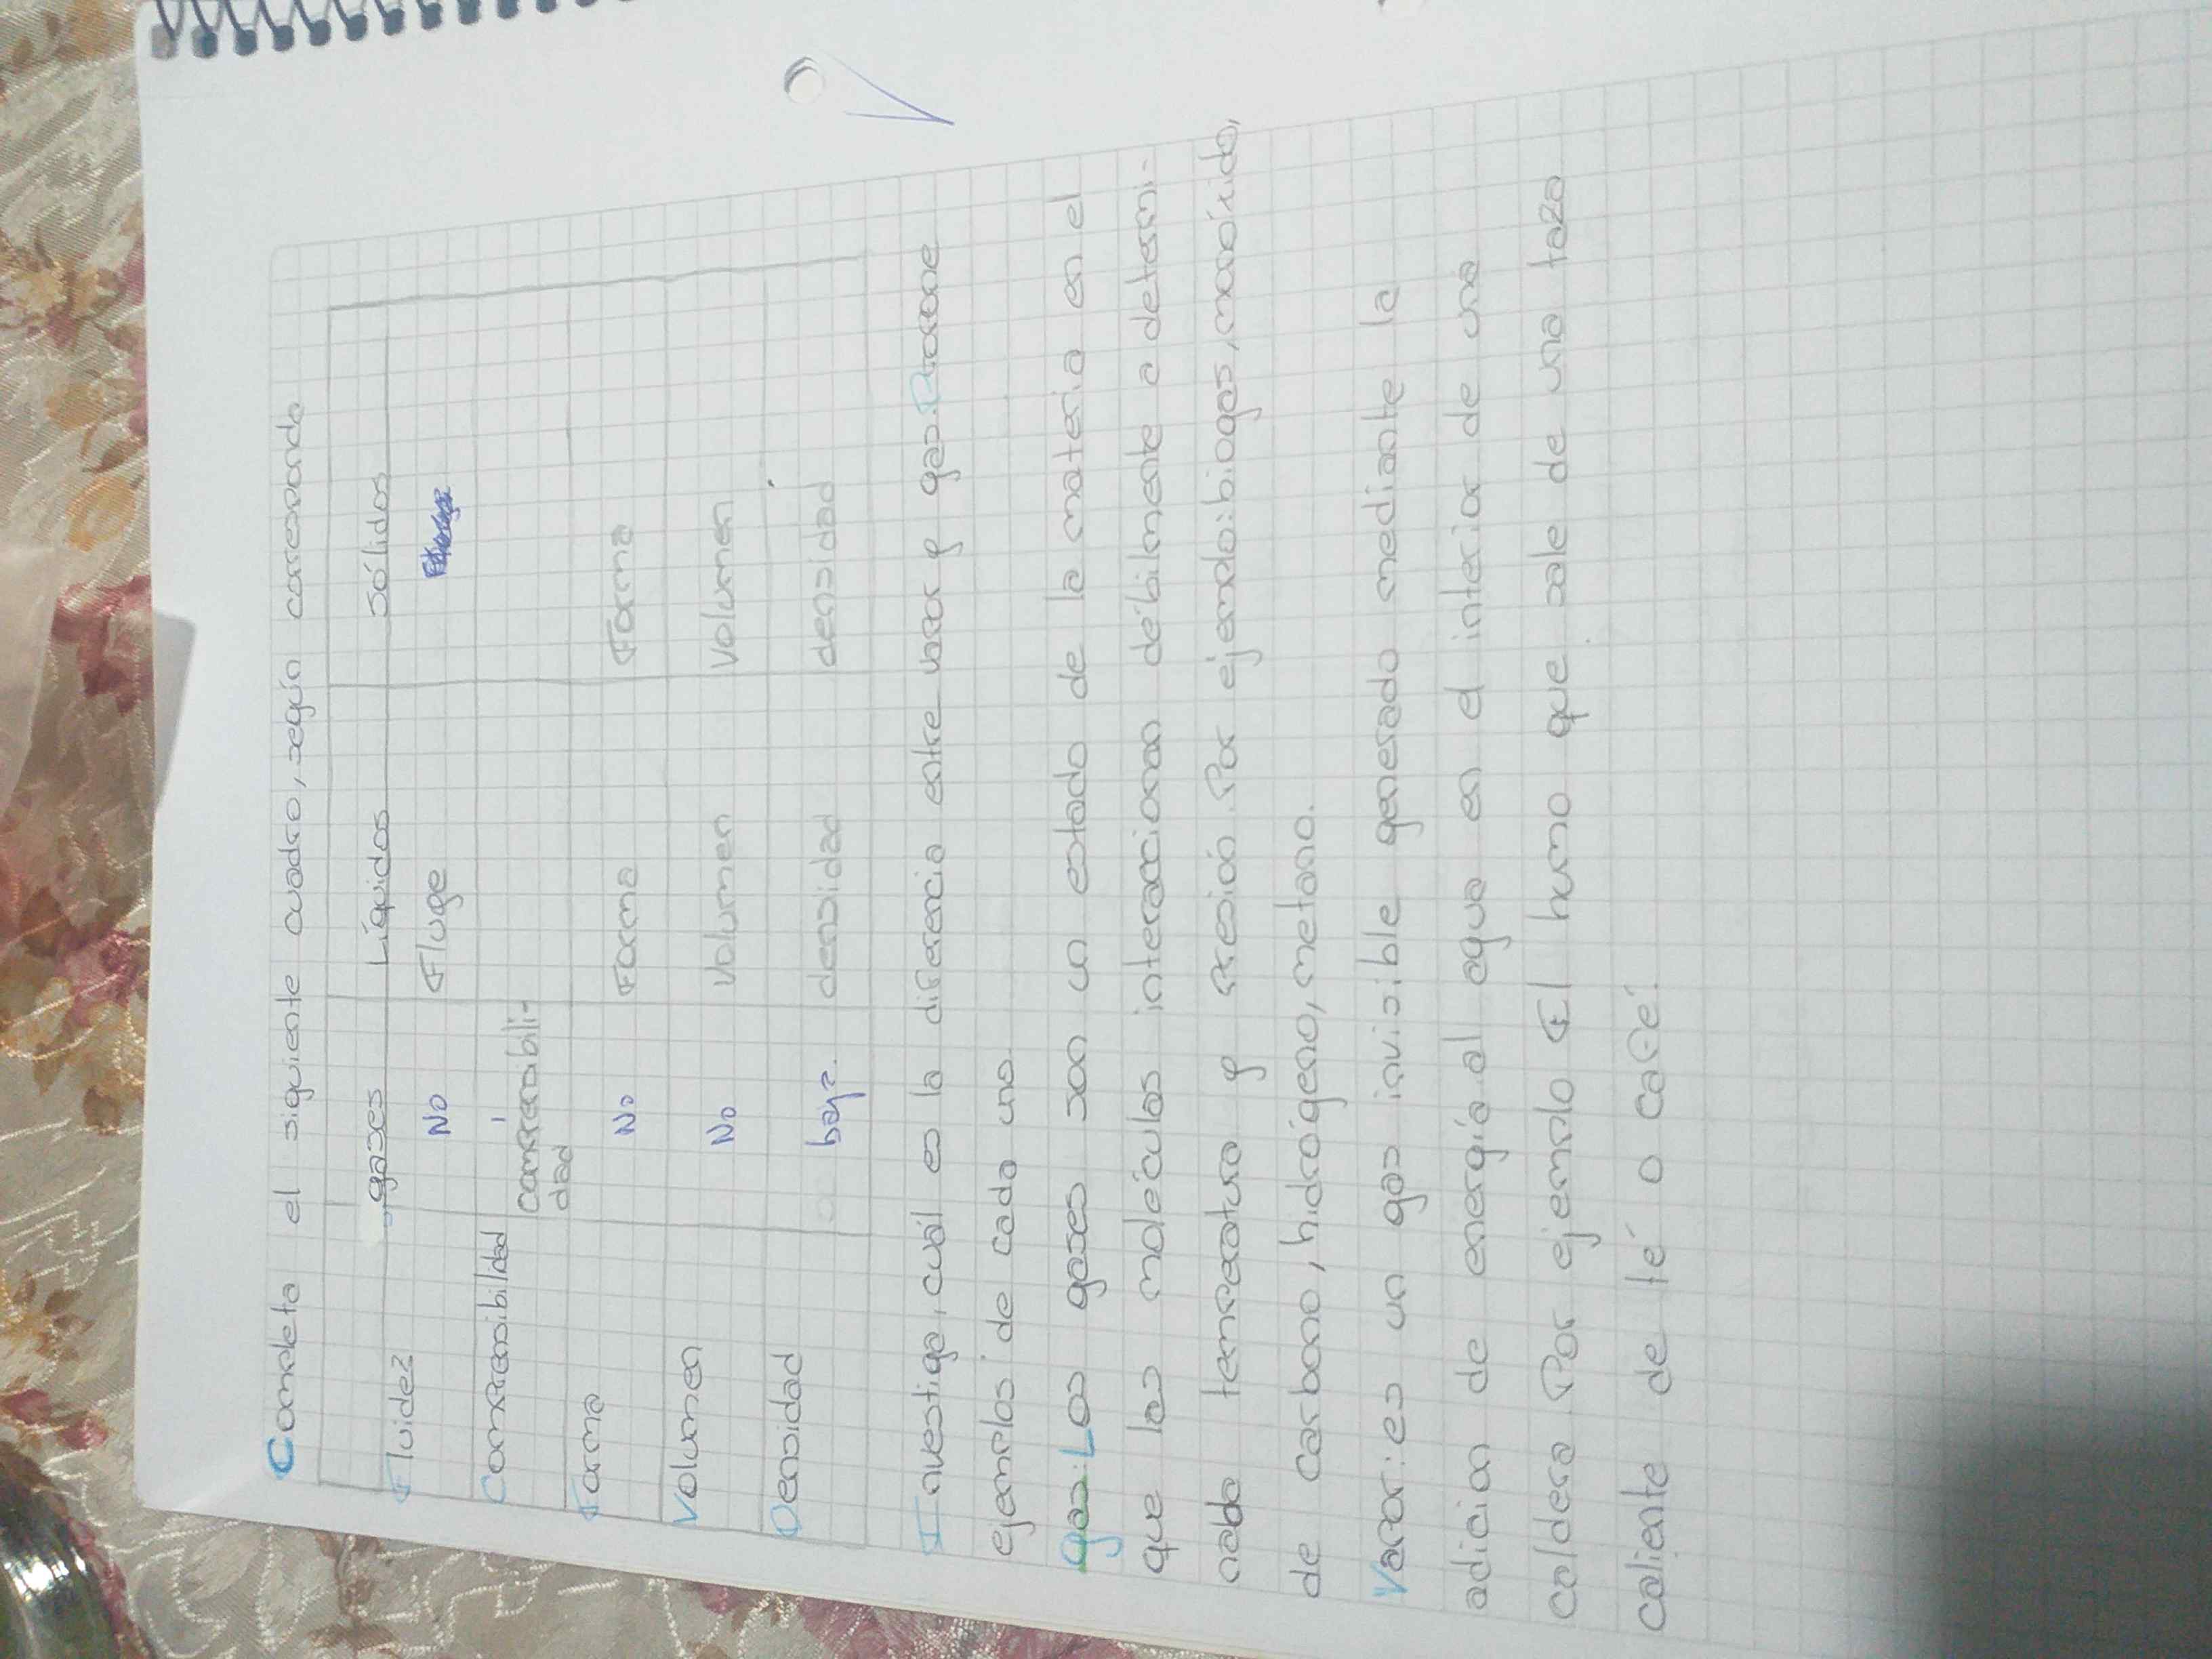 Completa el siguiente cuadro, según corresponda
gases Líquidos sólidos
Fluidez No Fluye
Compresibilidad compresabili-
dad
Forma No Forma Forma
Volumen No Volumen Volumen
Densidad baja. densidad densidad
Investiga, cuál es la diferencia entre vapor y gas. Propone
ejemplos de cada uno.
gas: Los gases son un estado de la materia en el
que las moléculas interaccionan débilmente a determi-
nada temperatura y presión. Por ejemplo: biogas, monóxido,
de Carbono, hidrógeno, metano.
Vapor: es un gas invisible generado mediante la
adicion de energía al agua en el interior de una
caldera. Por ejemplo El humo que sale de una taza
caliente de té o café.